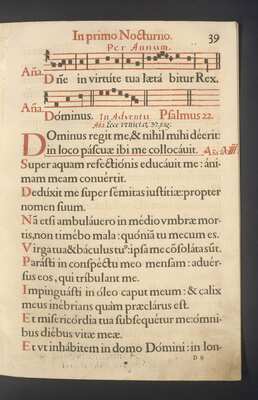 In primo Nocturno. 39
Per Annum.
Aña.
Dñe in virtúte tua lætá bitur Rex.
Aña.
Dóminus. In Adventu Psalmus 22.
Dominus regit me, & nihil mihi déerit:
in loco páscuæ ibi me collocáuit.
Super aquam refectiónis educáuit me: áni-
mam meam conuértit.
Dedúxit me super sémitas iustítiæ: propter
nomen suum.
Nã etsi ambuláuero in médio vmbræ mor-
tis, non timébo mala: quóniã tu mecum es.
Virga tua & báculus tuus: ipsa me cõsoláta sũt.
Parásti in conspéctu meo mensam: aduér-
sus eos, qui tríbulant me.
Impinguásti in óleo caput meum: & calix
meus inébrians quàm præclárus est.
Et misericórdia tua subsequétur me: ómni-
bus diébus vitæ meæ.
Et vt inhábitem in domo Dómini: in lon-